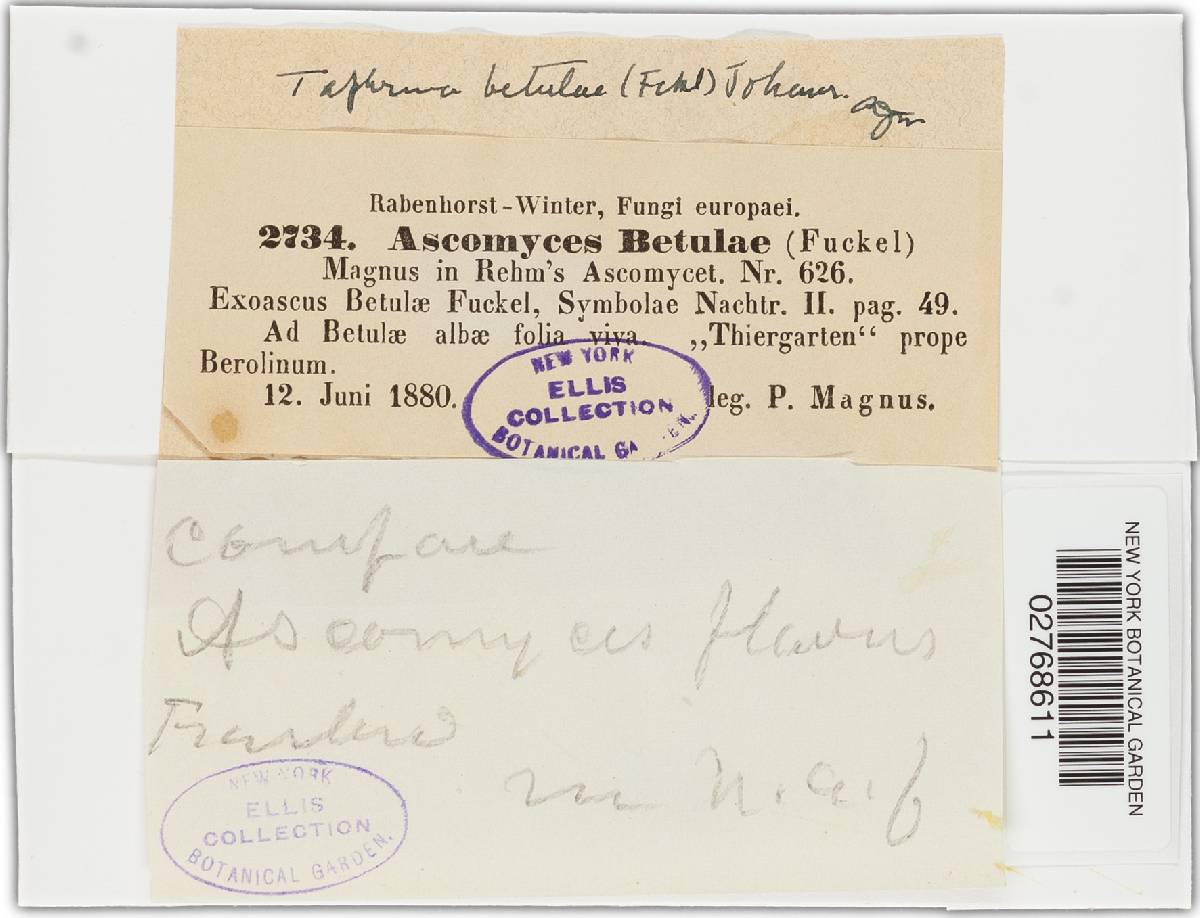 Taphrina betulae (Fckl) Johans.
Rabenhorst-Winter, Fungi europaei.
2734. Ascomyces Betulae (Fuckel)
Magnus in Rehm's Ascomycet. Nr. 626.
Exoascus Betulæ Fuckel, Symbolae Nachtr. II. pag. 49.
Ad Betulæ albæ folia viva. „Thiergarten“ prope
Berolinum.
12. Juni 1880. leg. P. Magnus.
NEW YORK
ELLIS
COLLECTION
BOTANICAL GARDEN.
Compare
Ascomyces flavus
in N. A. f
NEW YORK
ELLIS
COLLECTION
BOTANICAL GARDEN.
NEW YORK BOTANICAL GARDEN
02768611